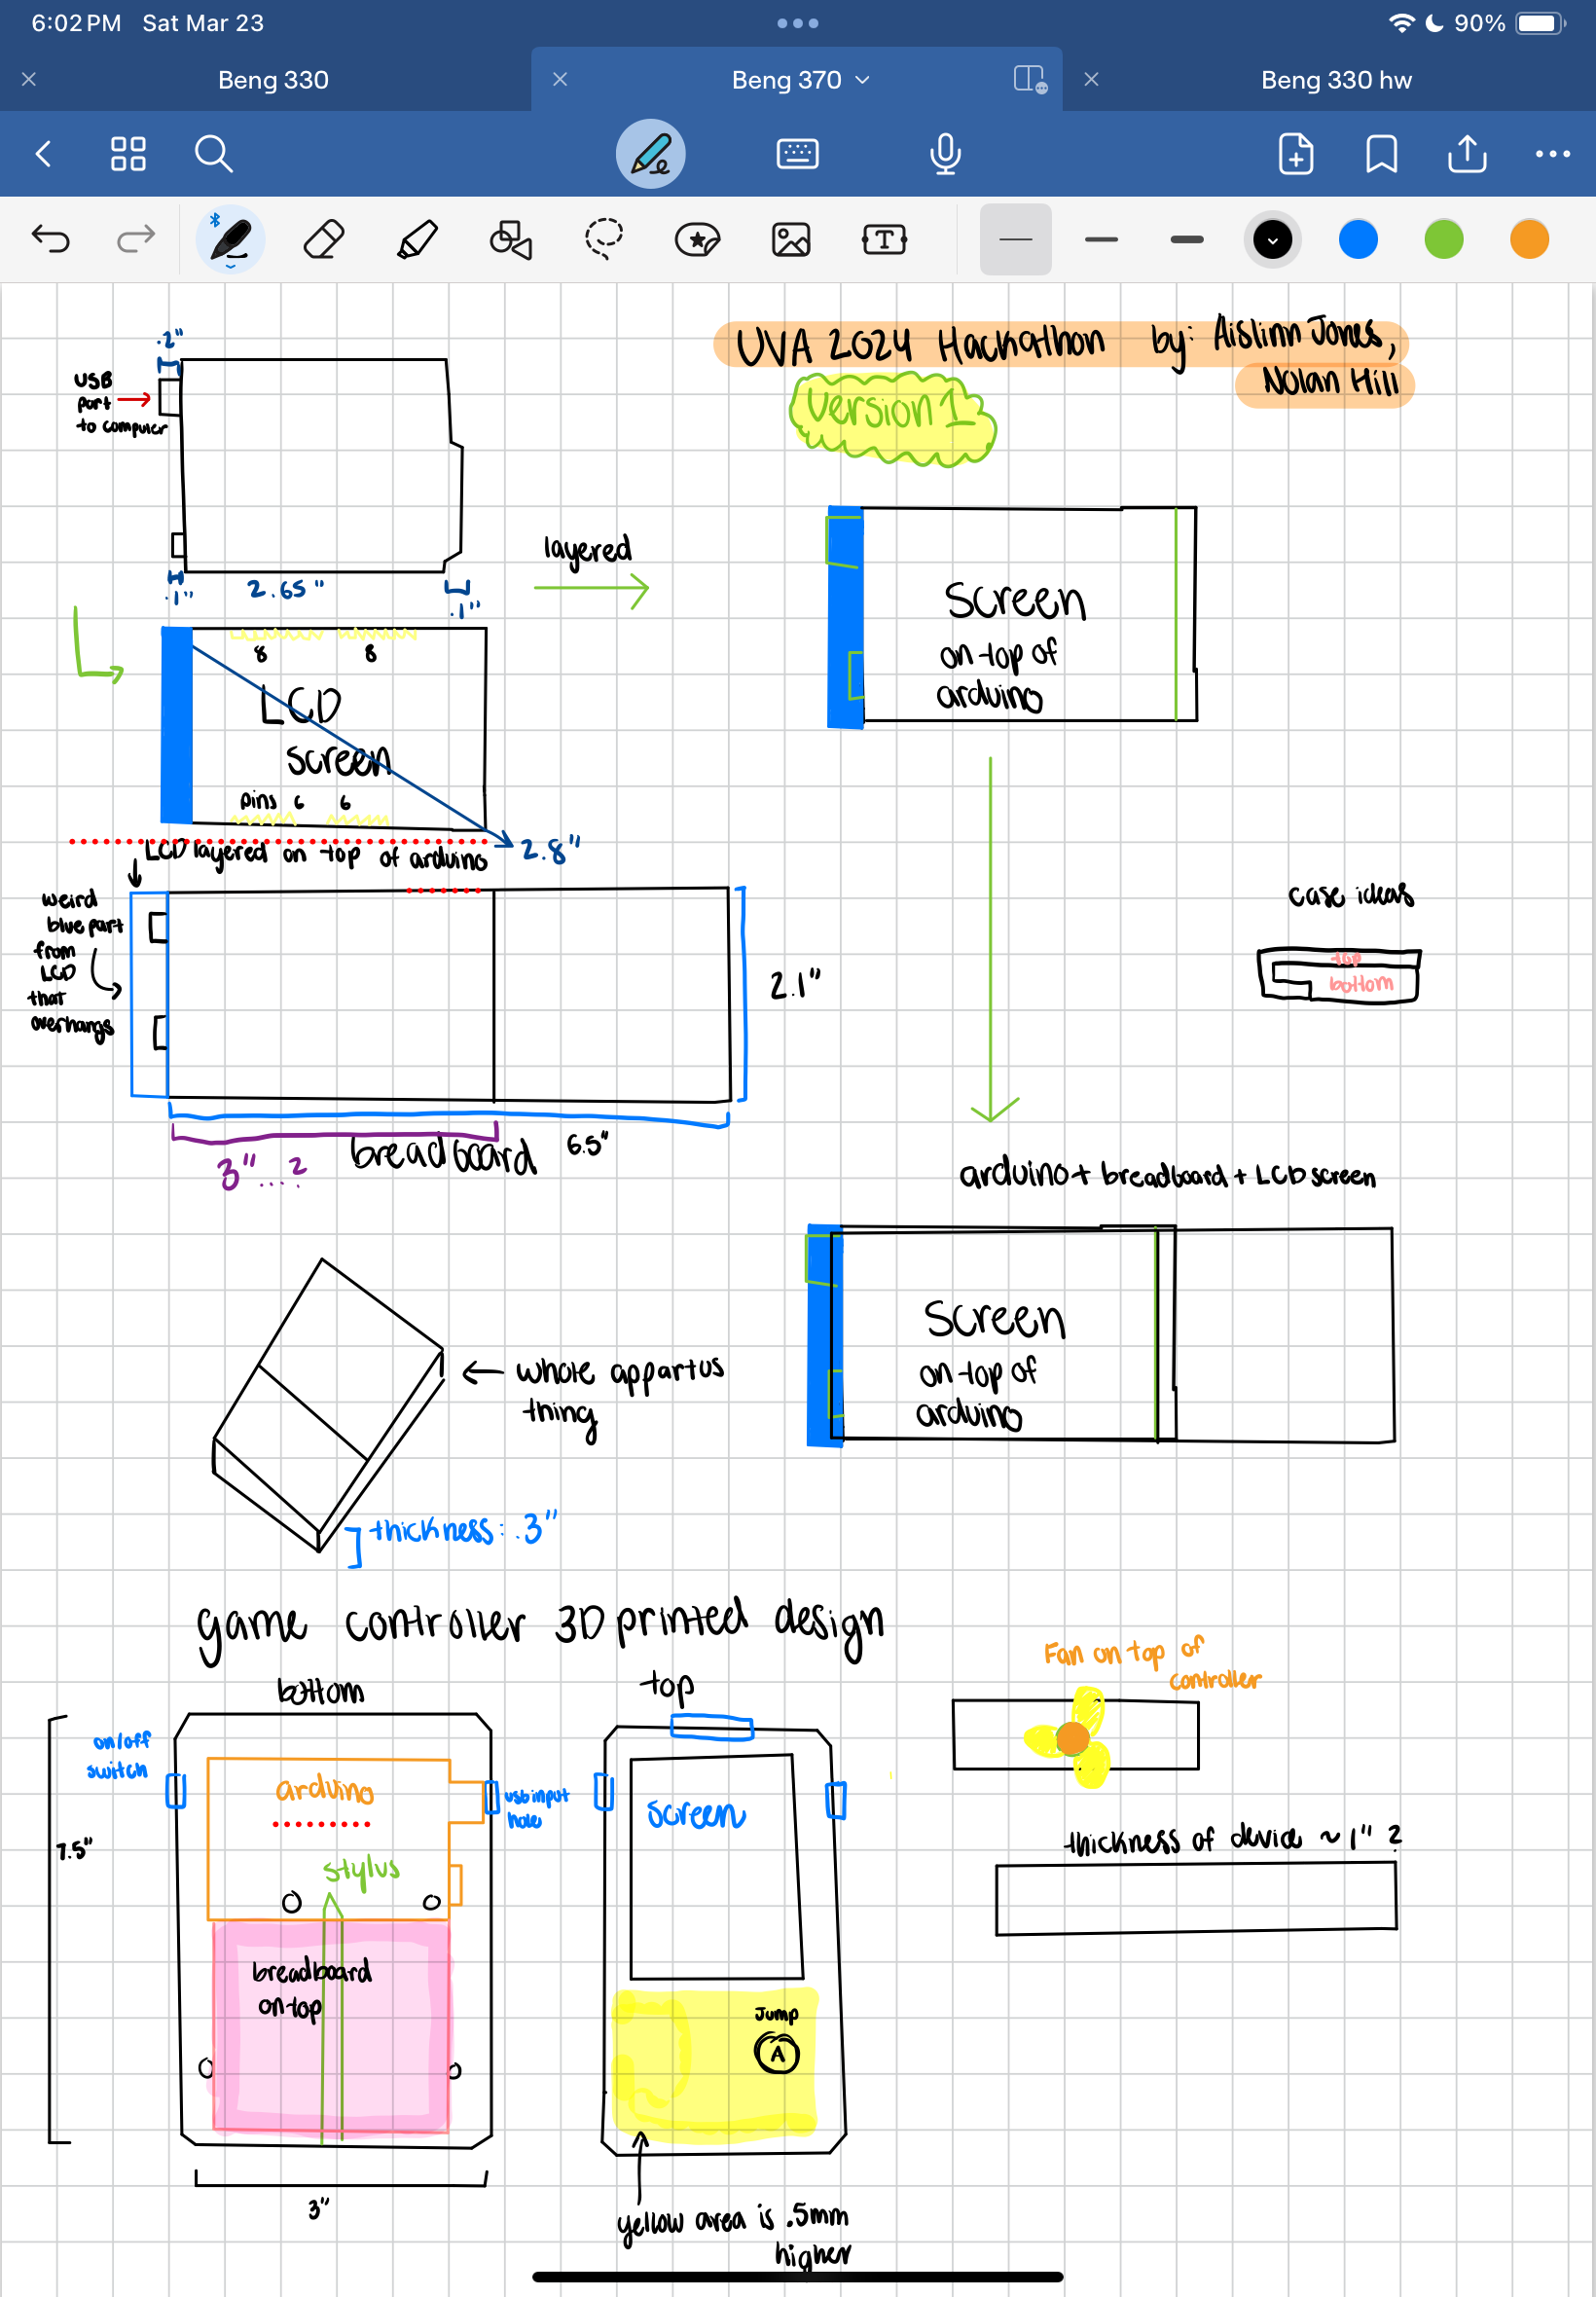 6:02 PM Sat Mar 23
90%
Beng 330
Beng 370
Beng 330 hw
UVA 2024 Hackathon by: Aislinn Jones,
Nolan Hill
Version 1
.2"
USB
port
to computer
.1"
2.65"
.1"
layered
Screen
on top of
arduino
8 8
LCD
screen
pins 6 6
2.8"
LCD layered on top of arduino
weird
blue part
from
LCD
that
overhangs
2.1"
case ideas
top
bottom
6.5"
breadboard
3"...?
arduino + breadboard + LCD screen
Screen
on top of
arduino
whole appartus
thing
thickness: .3"
game controller 3D printed design
bottom
top
Fan on top of
controller
on/off
switch
arduino
usb input
hole
screen
7.5"
thickness of device ~ 1" ?
stylus
breadboard
on top
Jump
A
3"
yellow area is .5mm
higher